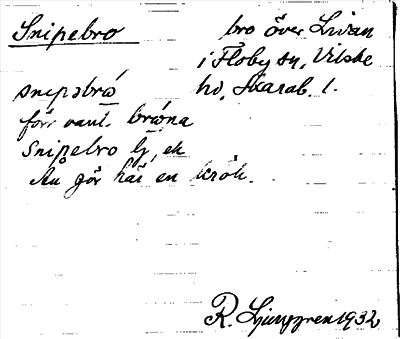 Snipebro
bro över Lidan
i Floby sn, Vilske
hd, Skarab. l.
snipəbrω
förr vanl. brωna
Snipebro lj, ek
Ån gör här en krök.
R. Ljunggren 1932